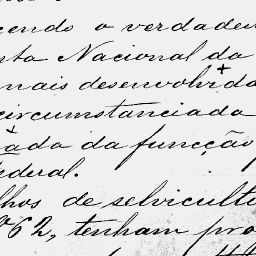 cendo o verdadei
sta Nacional da
mais desenvolvida
circumstanciada
ada da funcção
ederal.
lhos de selvicult
62, tenham pro